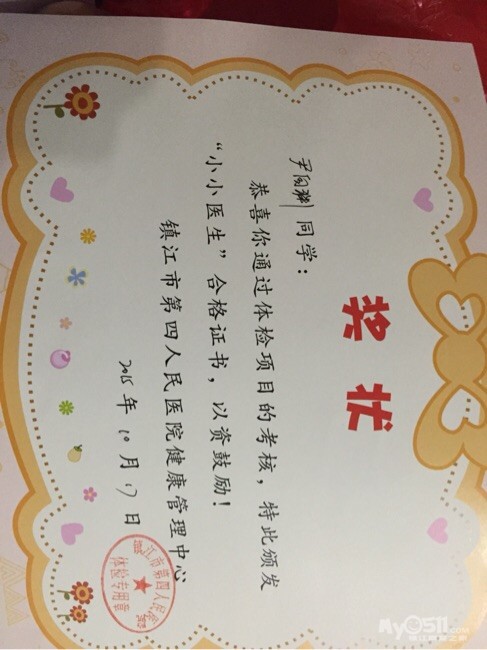 奖状
尹周骅同学：
恭喜你通过体检项目的考核，特此颁发
“小小医生”合格证书，以资鼓励！
镇江市第四人民医院健康管理中心
2015年10月17日
江市第四人民
体检专用章
My0511.COM